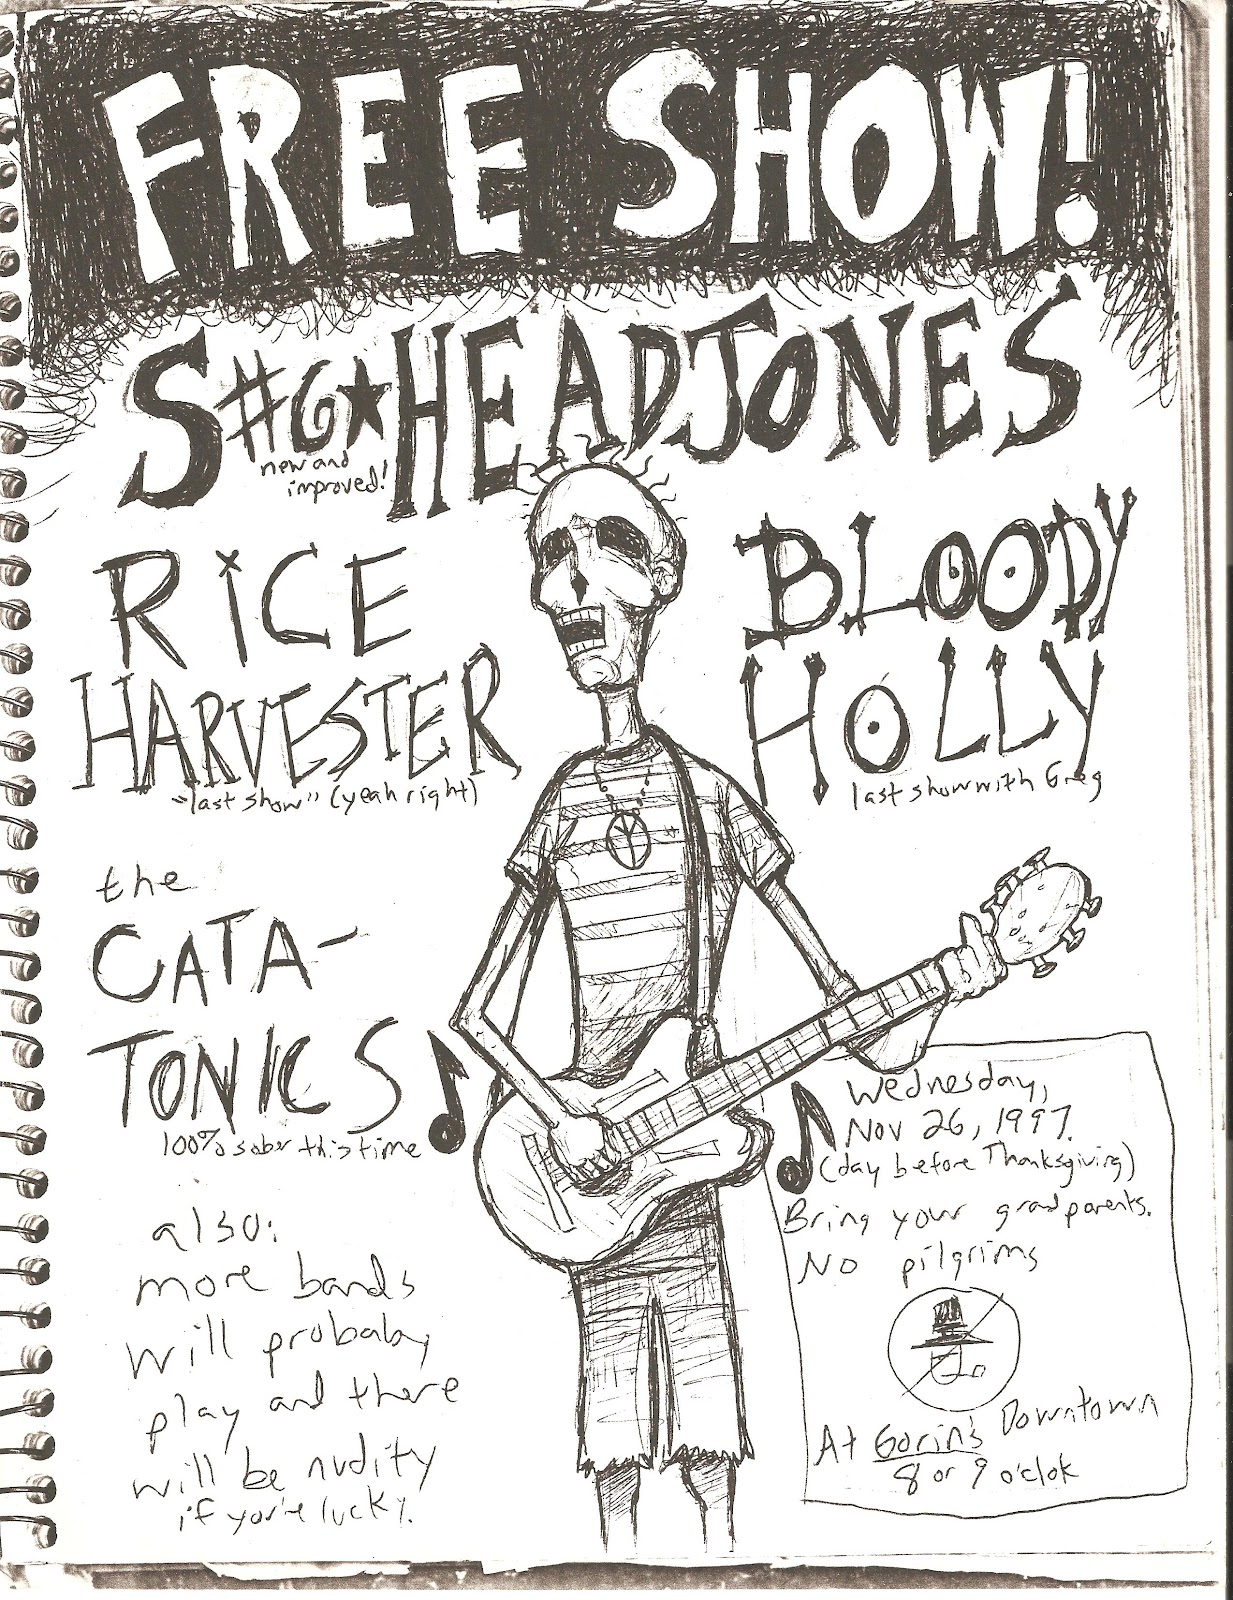 FREE SHOW!
S#G★HEADJONES
new and
improved!
RiCE
HARVESTER
"last show" (yeah right)
BLOODY
HOLLY
last show with Greg
the
CATA-
TONICS
100% sober this time
also:
more bands
will probably
play and there
will be nudity
if you're lucky.
Wednesday,
Nov 26, 1997.
(day before Thanksgiving)
Bring your grandparents.
No pilgrims
At Gorin's Downtown
8 or 9 o'clok